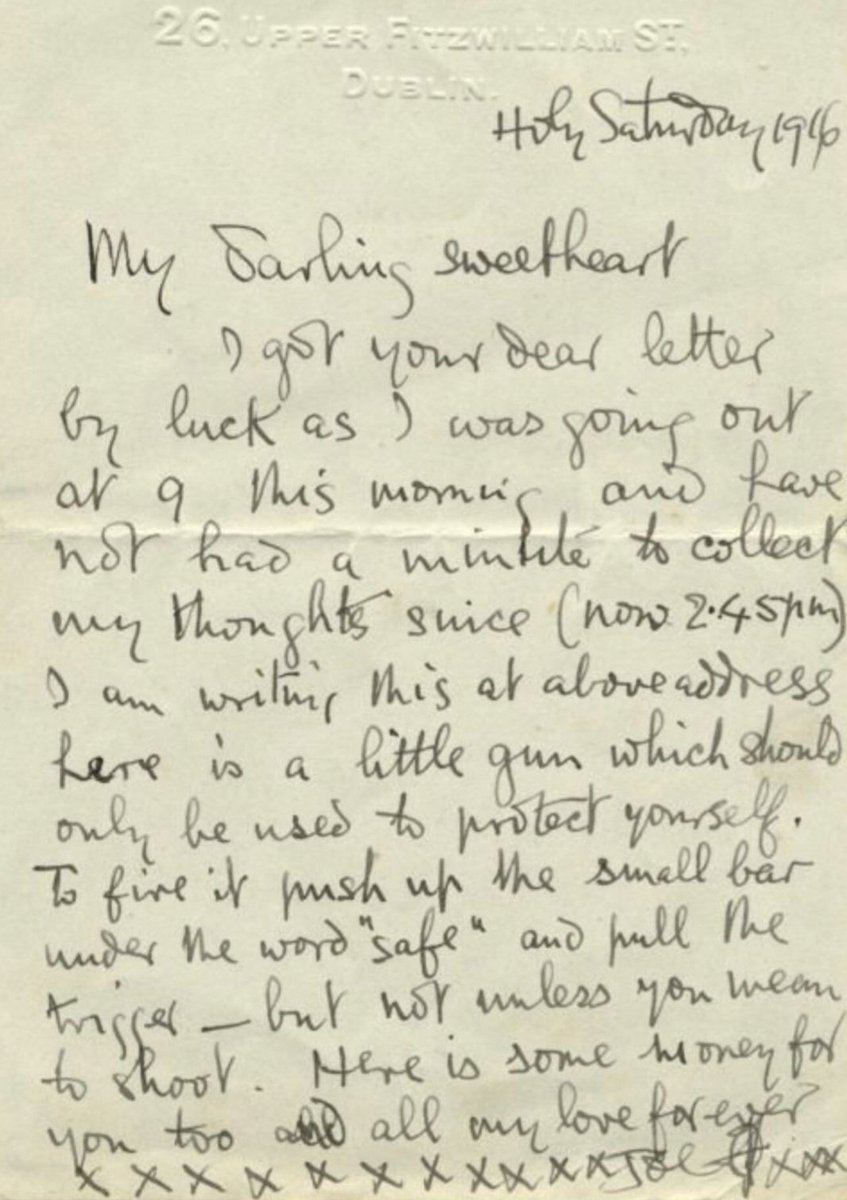 26, UPPER FITZWILLIAM ST,
DUBLIN.
Holy Saturday 1916
My Darling sweetheart
I got your dear letter
by luck as I was going out
at 9 this morning and have
not had a minute to collect
my thoughts since (now 2.45pm)
I am writing this at above address
here is a little gun which should
only be used to protect yourself.
To fire it push up the small bar
under the word "safe" and pull the
trigger — but not unless you mean
to shoot. Here is some money for
you too and all my love forever
x x x x x x x x x x x x Joe xxx